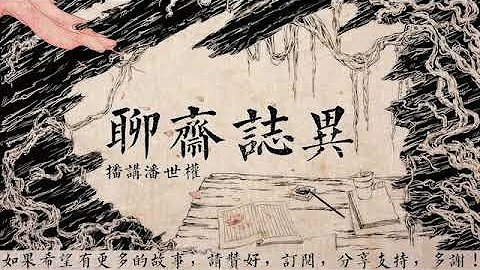 聊齋誌異
播講潘世權
如果希望有更多的故事，請贊好，訂閱，分享支持，多謝！